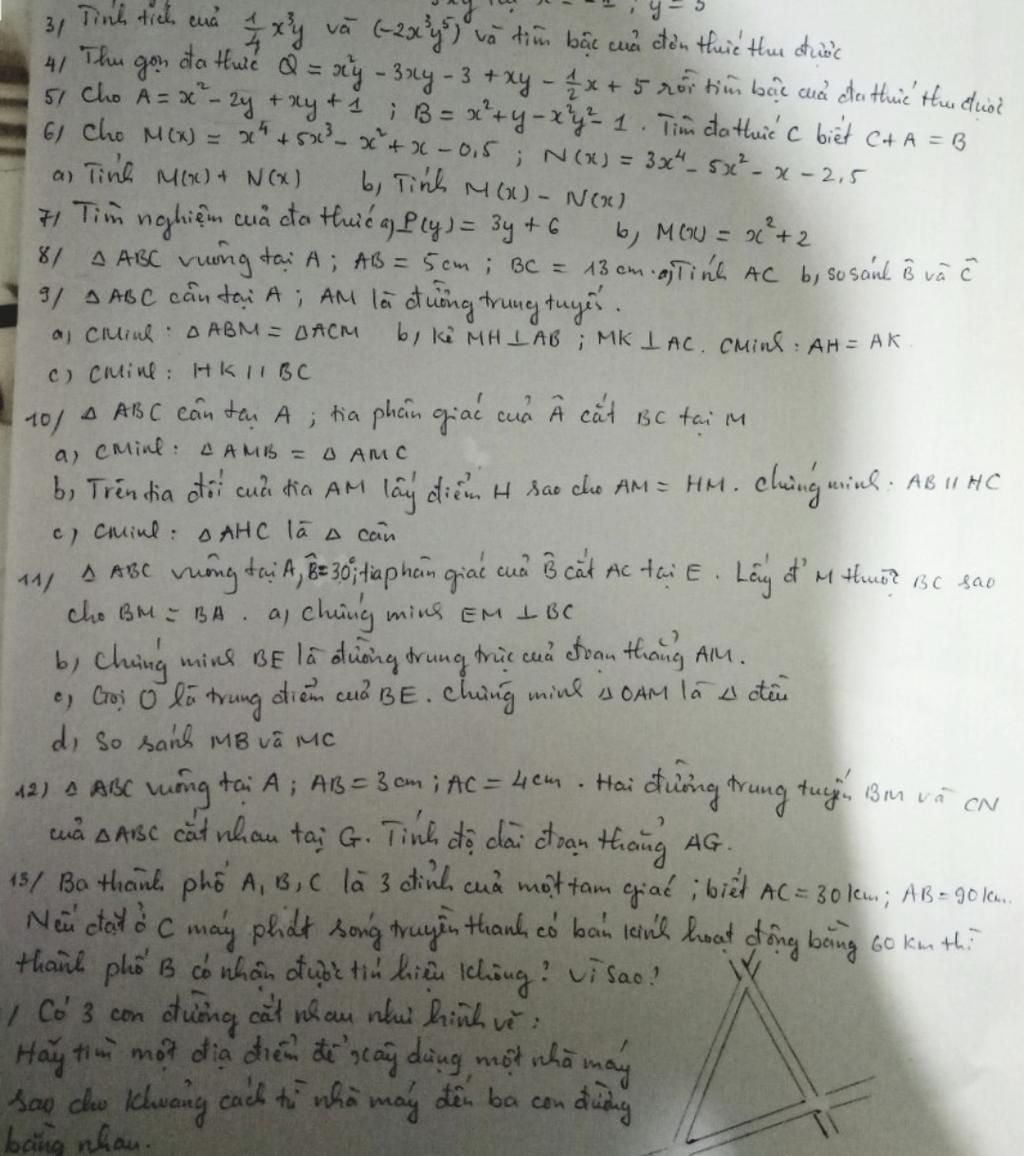 y = 5
3/ Tính tích của $\frac{1}{4}x^3y$ và $(-2x^3y^5)$ và tìm bậc của đơn thức thu được
4/ Thu gọn đa thức $Q = x^2y - 3xy - 3 + xy - \frac{1}{2}x + 5$ rồi tìm bậc của đa thức thu được
5/ Cho $A = x^2 - 2y + xy + 1$ ; $B = x^2 + y - x^2y^2 - 1$. Tìm đa thức C biết C + A = B
6/ Cho $M(x) = x^4 + 5x^3 - x^2 + x - 0,5$ ; $N(x) = 3x^4 - 5x^2 - x - 2,5$
a) Tính M(x) + N(x) b, Tính M(x) - N(x)
7/ Tìm nghiệm của đa thức a) P(y) = 3y + 6 b, $M(x) = x^2 + 2$
8/ Δ ABC vuông tại A ; AB = 5 cm ; BC = 13 cm. a) Tính AC b, so sánh B̂ và Ĉ
9/ Δ ABC cân tại A ; AM là đường trung tuyến.
a) CMinh : Δ ABM = Δ ACM b, kẻ MH ⊥ AB ; MK ⊥ AC. CMinh : AH = AK.
c) CMinh : HK // BC
10/ Δ ABC cân tại A ; tia phân giác của Â cắt BC tại M
a) CMinh : Δ AMB = Δ AMC
b) Trên tia đối của tia AM lấy điểm H sao cho AM = HM. Chứng minh : AB // HC
c) CMinh : Δ AHC là Δ cân
11/ Δ ABC vuông tại A, B̂ = 30°, tia phân giác của B̂ cắt AC tại E. Lấy đ' M thuộc BC sao
cho BM = BA. a) chứng minh EM ⊥ BC
b) Chứng minh BE là đường trung trực của đoạn thẳng AM.
c) Gọi O là trung điểm của BE. Chứng minh Δ OAM là Δ đều
d) So sánh MB và MC
12) Δ ABC vuông tại A ; AB = 3 cm ; AC = 4 cm. Hai đường trung tuyến BM và CN
của Δ ABC cắt nhau tại G. Tính độ dài đoạn thẳng AG.
13/ Ba thành phố A, B, C là 3 đỉnh của một tam giác ; biết AC = 30 km ; AB = 90 km.
Nếu đặt ở C máy phát sóng truyền thanh có bán kính hoạt động bằng 60 km thì
thành phố B có nhận được tín hiệu không? Vì sao?
/ Có 3 con đường cắt nhau như hình vẽ :
Hãy tìm một địa điểm để xây dựng một nhà máy
sao cho khoảng cách từ nhà máy đến ba con đường
bằng nhau.